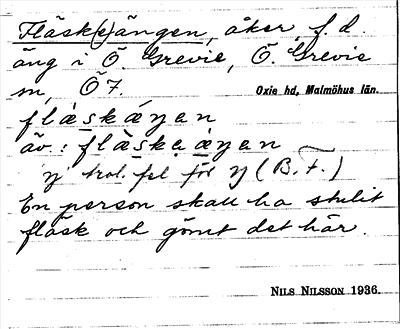 Fläsk(e)ängen, åker, f. d.
äng i Ö. Grevie, Ö. Grevie
sn, Ö7. Oxie hd, Malmöhus län.
flàskáyen
äv.: flàskeàyen
y trol. fel för ŋ (B. F.)
En person skall ha stulit
fläsk och gömt det här.
NILS NILSSON 1936.